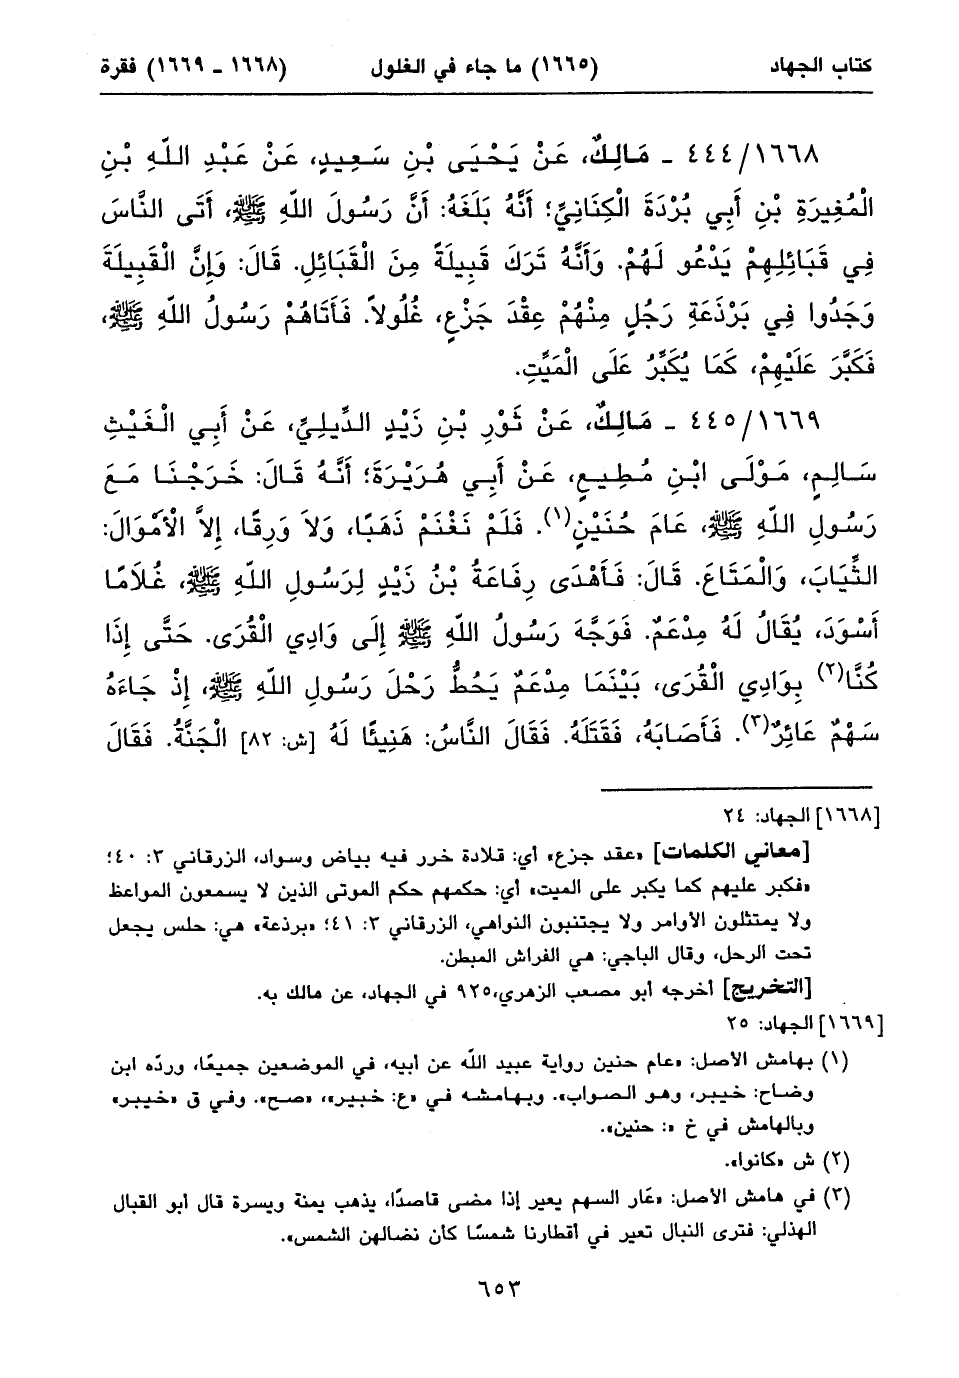 كتاب الجهاد (١٦٦٥) ما جاء في الغلول (١٦٦٨ - ١٦٦٩) فقرة
١٦٦٨/٤٤٤ - مَالِكٌ، عَنْ يَحْيَى بْنِ سَعِيدٍ، عَنْ عَبْدِ اللَّهِ بْنِ
الْمُغِيرَةِ بْنِ أَبِي بُرْدَةَ الْكِنَانِيِّ؛ أَنَّهُ بَلَغَهُ: أَنَّ رَسُولَ اللَّهِ ﷺ، أَتَى النَّاسَ
فِي قَبَائِلِهِمْ يَدْعُو لَهُمْ. وَأَنَّهُ تَرَكَ قَبِيلَةً مِنَ الْقَبَائِلِ. قَالَ: وَإِنَّ الْقَبِيلَةَ
وَجَدُوا فِي بَرْذَعَةِ رَجُلٍ مِنْهُمْ عِقْدَ جَزْعٍ، غُلُولاً. فَأَتَاهُمْ رَسُولُ اللَّهِ ﷺ،
فَكَبَّرَ عَلَيْهِمْ، كَمَا يُكَبِّرُ عَلَى الْمَيِّتِ.
١٦٦٩/٤٤٥ - مَالِكٌ، عَنْ ثَوْرِ بْنِ زَيْدٍ الدِّيلِيِّ، عَنْ أَبِي الْغَيْثِ
سَالِمٍ، مَوْلَى ابْنِ مُطِيعٍ، عَنْ أَبِي هُرَيْرَةَ؛ أَنَّهُ قَالَ: خَرَجْنَا مَعَ
رَسُولِ اللَّهِ ﷺ، عَامَ حُنَيْنٍ(١). فَلَمْ نَغْنَمْ ذَهَبًا، وَلاَ وَرِقًا، إِلاَّ الْأَمْوَالَ:
الثِّيَابَ، وَالْمَتَاعَ. قَالَ: فَأَهْدَى رِفَاعَةُ بْنُ زَيْدٍ لِرَسُولِ اللَّهِ ﷺ، غُلَامًا
أَسْوَدَ، يُقَالُ لَهُ مِدْعَمٌ. فَوَجَّهَ رَسُولُ اللَّهِ ﷺ إِلَى وَادِي الْقُرَى. حَتَّى إِذَا
كُنَّا(٢) بِوَادِي الْقُرَى، بَيْنَمَا مِدْعَمٌ يَحُطُّ رَحْلَ رَسُولِ اللَّهِ ﷺ، إِذْ جَاءَهُ
سَهْمٌ عَائِرٌ(٣). فَأَصَابَهُ، فَقَتَلَهُ. فَقَالَ النَّاسُ: هَنِيئًا لَهُ [ش: ٨٢] الْجَنَّةُ. فَقَالَ
[١٦٦٨] الجهاد: ٢٤
[معاني الكلمات] «عقد جزع» أي: قلادة خرر فيه بياض وسواد، الزرقاني ٣: ٤٠؛
«فكبر عليهم كما يكبر على الميت» أي: حكمهم حكم الموتى الذين لا يسمعون المواعظ
ولا يمتثلون الأوامر ولا يجتنبون النواهي، الزرقاني ٣: ٤١؛ «برذعة» هي: حلس يجعل
تحت الرحل، وقال الباجي: هي الفراش المبطن.
[التخريج] أخرجه أبو مصعب الزهري،٩٢٥ في الجهاد، عن مالك به.
[١٦٦٩] الجهاد: ٢٥
(١) بهامش الأصل: «عام حنين رواية عبيد الله عن أبيه، في الموضعين جميعًا، وردّه ابن
وضاح: خيبر، وهو الصواب». وبهامشه في «ع: خيبر»، «صح». وفي ق «خيبر»
وبالهامش في خ «: حنين».
(٢) ش «كانوا».
(٣) في هامش الأصل: «عَار السهم يعير إذا مضى قاصدًا، يذهب يمنة ويسرة قال أبو القبال
الهذلي: فترى النبال تعير في أقطارنا شمسًا كأن نضالهن الشمس».
٦٥٣